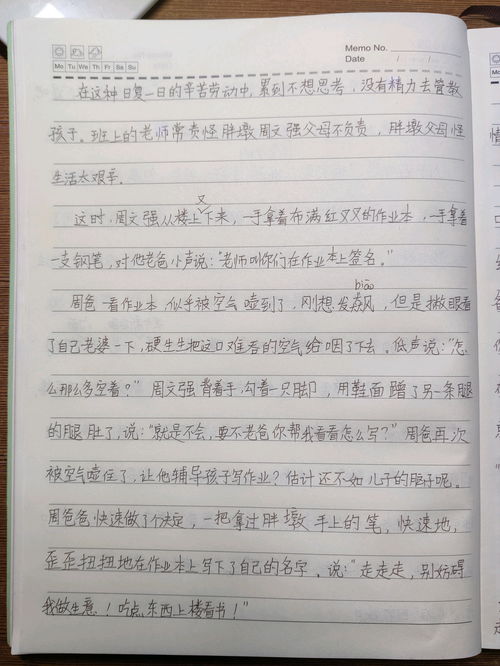 Memo No.
Mo Tu We Th Fr Sa Su
Date / /
在这种日复一日的辛苦劳动中,累到不想思考,没有精力去管教
孩子。班上的老师常责怪胖墩周文强父母不负责,胖墩父母怪
生活太艰辛.
又
这时,周文强从楼上下来,一手拿着布满红叉叉的作业本,一手拿着
一支钢笔,对他老爸小声说:“老师叫你们在作业本上签名。”
biāo
周爸一看作业本,似乎被空气噎到了,刚想发焱风,但是撇眼看
了自己老婆一下,硬生生把这口难看的空气给咽了下去。低声说:“怎
么那么多空着?”周文强背着手,勾着一只脚,用鞋面蹭了另一条腿
的腿肚子,说:“就是不会,要不老爸你帮我看看怎么写?”周爸再次
被空气噎住了,让他辅导孩子写作业?估计还不如儿子的脑子呢。
周爸爸快速做了个决定,一把拿过胖墩手上的笔,快速地,
歪歪扭扭地在作业本上写下了自己的名字。说:“走走走,别妨碍
我做生意!吃点东西上楼看书!”